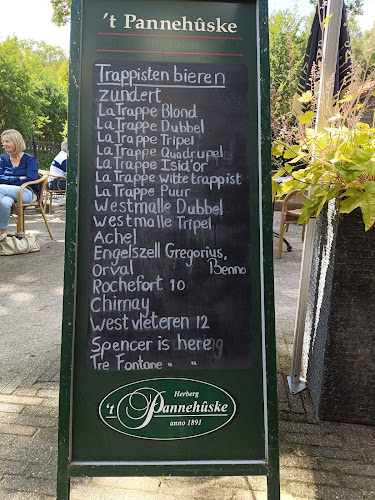 't Pannehûske
Trappisten bieren
zundert
La Trappe Blond
La Trappe Dubbel
La Trappe Tripel
La Trappe Quadrupel
La Trappe Isid'or
La Trappe witte trappist
La Trappe Puur
Westmalle Dubbel
Westmalle Tripel
Achel
Engelszell Gregorius,
Orval Benno
Rochefort 10
Chimay
Westvleteren 12
Spencer is here
Tre Fontane " "
Herberg
't Pannehûske
anno 1891